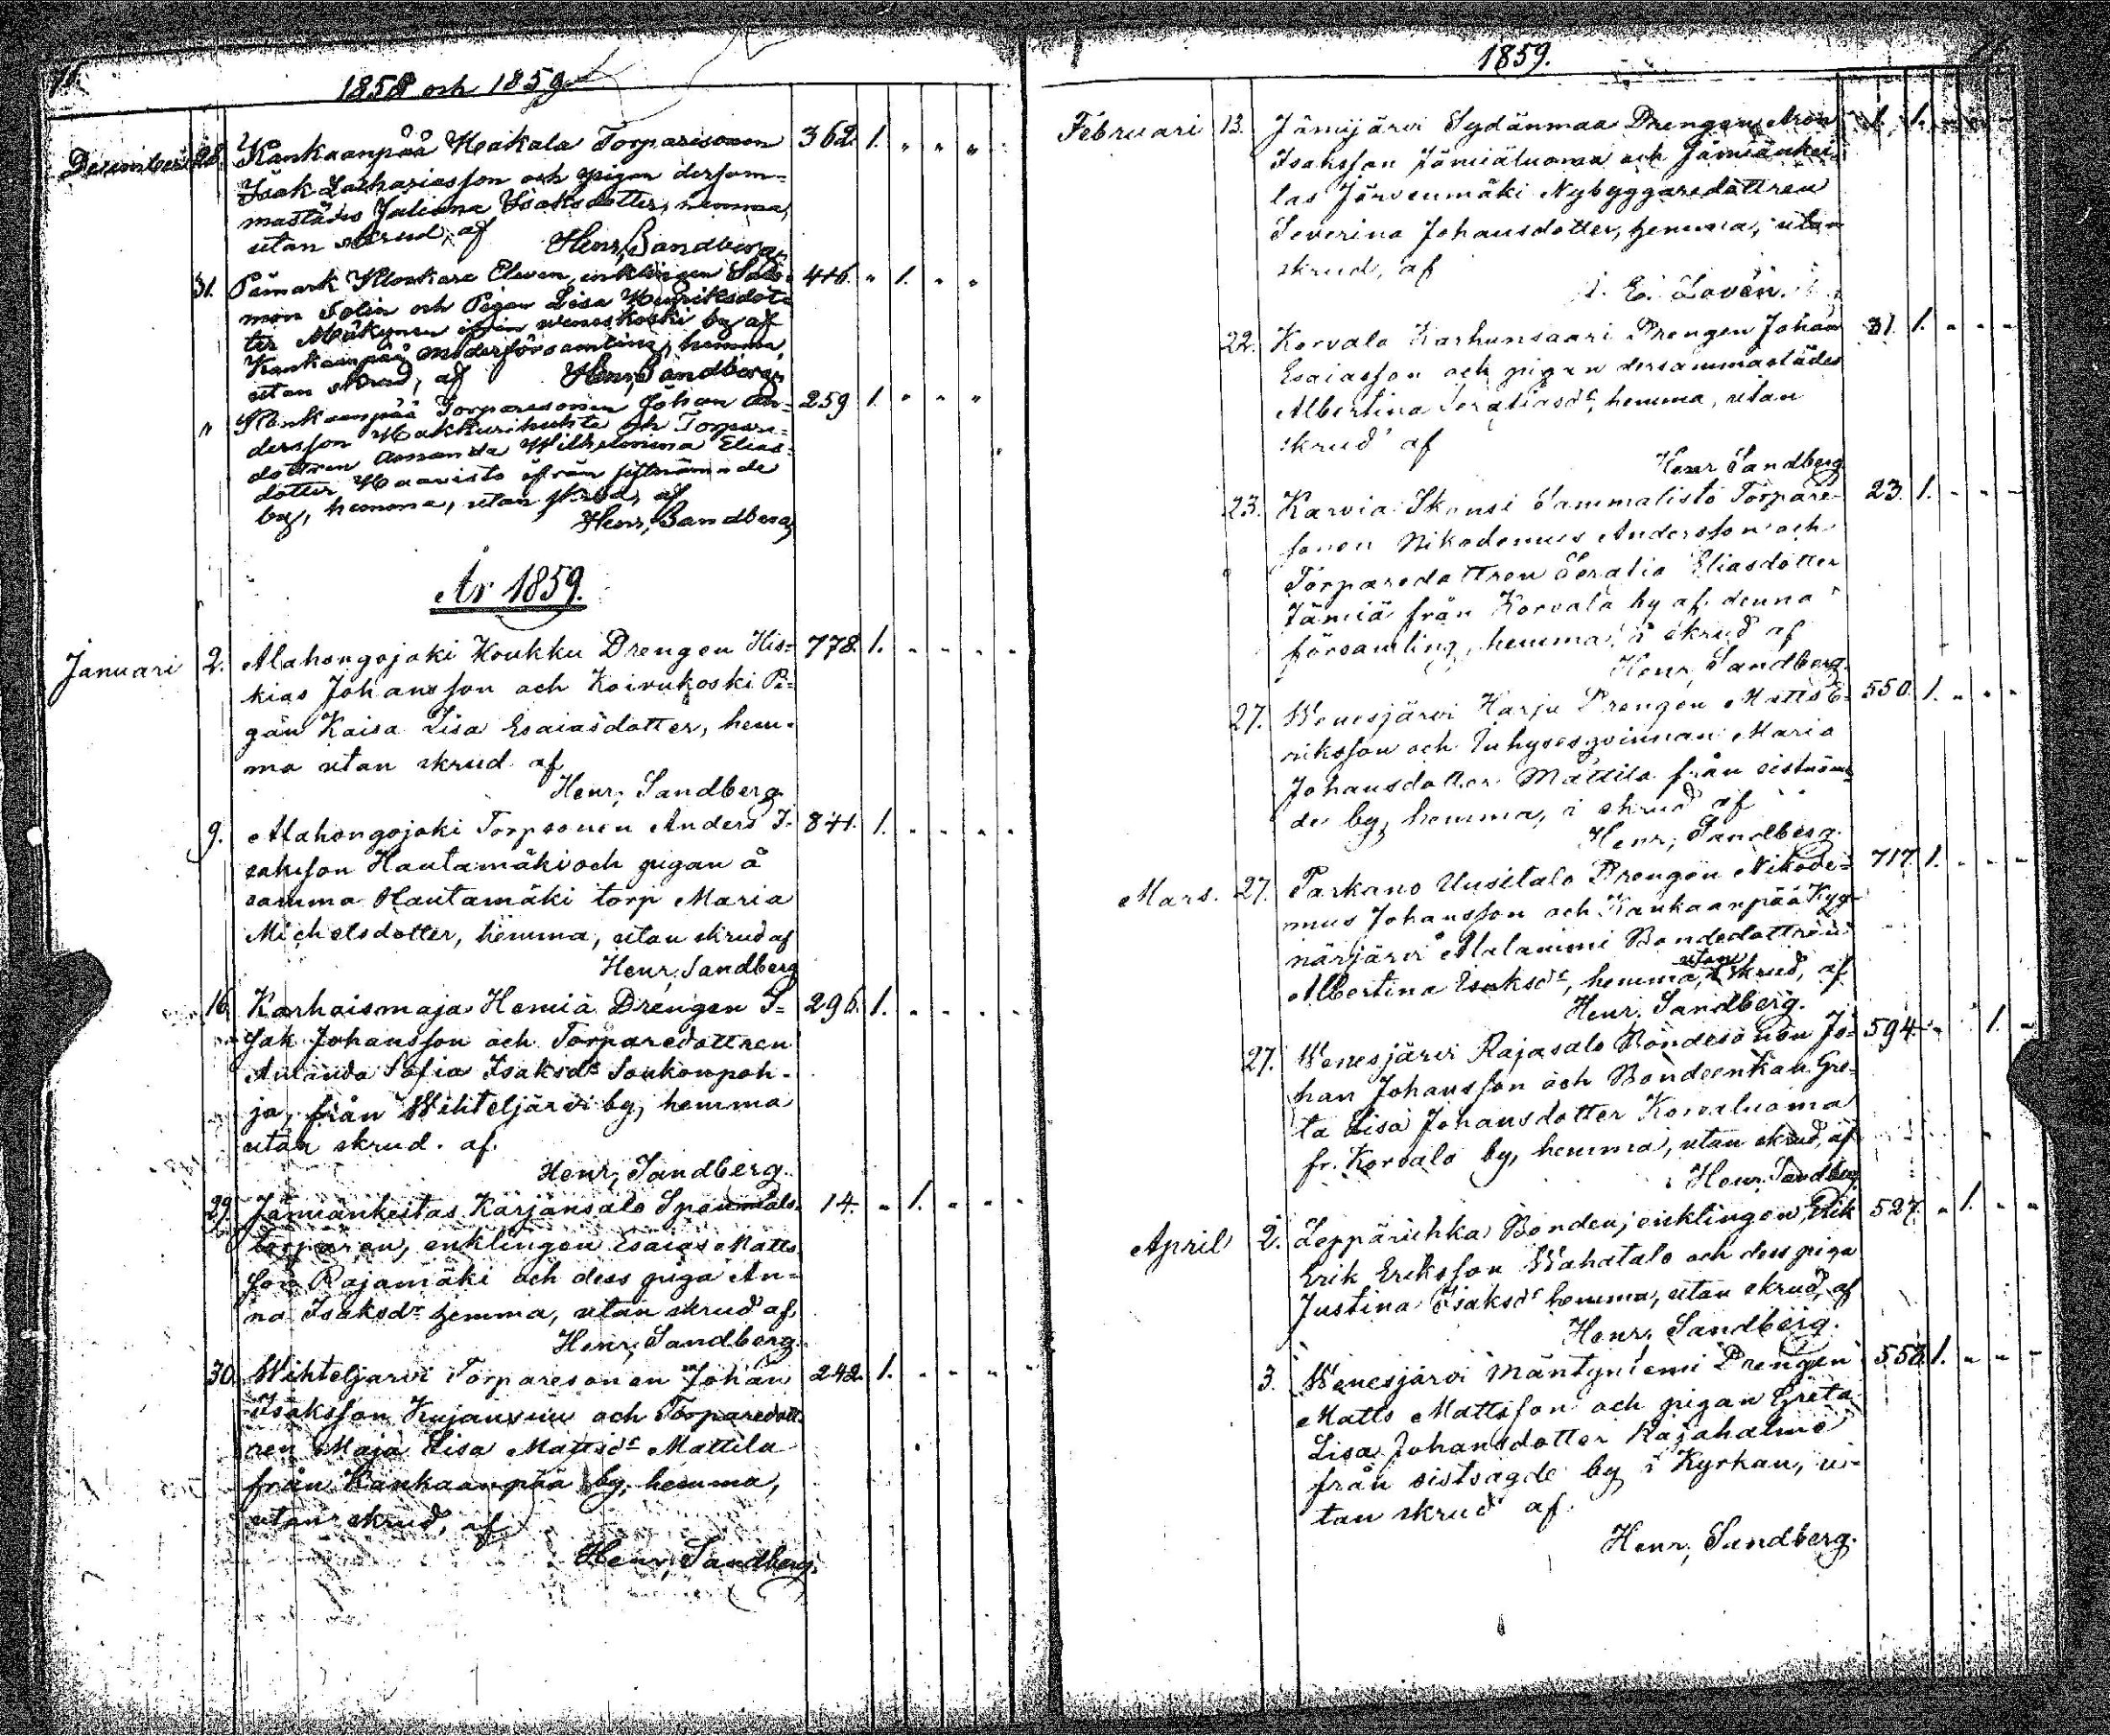 1858 och 1859
December 28. Kankaanpää Makala Torparesonen 362. 1. " " "
Isak Zachariasson och pigan dersam=
mastädes Juliana Isaksdotter, hemma,
utan skrud, af
Henr, Sandberg.
31. Påmark Klockare Eleven, enklingen Salo= 416. " 1. " "
mon Tolin och Pigan Lisa Henriksdot=
ter Mäkynen ifrån weneskoski by af
Kankaanpää moderförsamling, hemma,
utan skrud, af Henr, Sandberg,
" Kankaanpää Torparesonen Johan An= 259 1. " " "
dersson och Torpare=
dottren Amanda Wilhelmina Elias=
dotter Haavisto ifrån sistnämnde
by, hemma, utan skrud, af
Henr, Sandberg
År 1859.
Januari 2. Alahongojoki Koukku Drengen His= 778. 1. " " " "
kias Johansson och Koivukoski Pi=
gan Kaisa Lisa Esaiasdotter, hem=
ma utan skrud af
Henr, Sandberg.
9. Alahongojoki Torpsonen Anders I= 841. 1. " " " "
saksson Hautamäki och pigan å
samma Hautamäki torp Maria
Michelsdotter, hemma, utan skrud af
Henr, Sandberg
16. Karhoismaja Hemiä Drengen I= 296. 1. " " " "
sak Johansson och Torparedottren
Amanda Sofia Isaksdr Soukonpoh=
ja, från Wihteljärvi by, hemma
utan skrud. af.
Henr, Sandberg.
29. Jämiänkeitas Karjänsalo Spanmåls= 14. " 1. " " "
torparen, enklingen Esaias Matts=
son Rajamäki och dess piga An=
na Isaksdr hemma, utan skrud af,
Henr, Sandberg.
30. Wihteljärvi Torparesonen Johan 242. 1. " " " "
Isaksson Kujansuu och Torparedott=
ren Maja Lisa Mattsdr Mattila
från Kankaanpää by, hemma,
utan skrud, af
Henr, Sandberg.
1859.
Februari 13. Jämijärvi Sydänmaa Drengen Aron 1. 1. " " "
Isaksson Jämiäluoma och Jämiänkei=
las Järvenmäki Nybyggaredottren
Severina Johansdotter, hemma, utan
skrud, af
E. Lovén.
22. Korvala Karhunsaari Drengen Johan 31. 1. " " "
Esaiasson och pigan dersammastädes
Albertina hemma, utan
skrud af
Henr Sandberg
23. Karvia Skansi Sammalistö Torpare= 23. 1. " " "
sonen Nikodemus Andersson och
Torparedottren Seratia Eliasdotter
Jämiä från Korvala by af denna
församling, hemma, i skrud af
Henr, Sandberg.
27. Wenesjärvi Harju Drengen Matts E= 550. 1. " " "
riksson och Inhysesqvinnan Maria
Johansdotter Mattila från sistnämn=
de by, hemma, i skrud af
Henr, Sandberg.
Mars. 27. Parkano Uusitalo Drengen Nikode= 717. 1. " " "
mus Johansson och Kankaanpää Kyy=
närjärvi Alalammi Bondedottren
Albertina Isaksdr, hemma, utan skrud, af
Henr, Sandberg.
27. Wenesjärvi Rajasalo Bondesonen Jo= 594. " " 1. "
han Johansson och Bondeenkan Gre=
ta Lisa Johansdotter Korvaluoma
fr. Korvala by, hemma, utan skrud, af
Henr, Sandberg
April 2. Leppäruhka Bonden, enklingen, Erik 527. " 1. " "
Erik Eriksson Wahatalo och dess piga
Justina Isaksdr hemma, utan skrud, af
Henr, Sandberg.
3. Wenesjärvi Mäntyniemi Drengen 558. 1. " " "
Matts Mattsson och pigan Greta
Lisa Johansdotter Rajahalme
från sistsagde by i Kyrkan, u=
tan skrud af.
Henr, Sandberg.